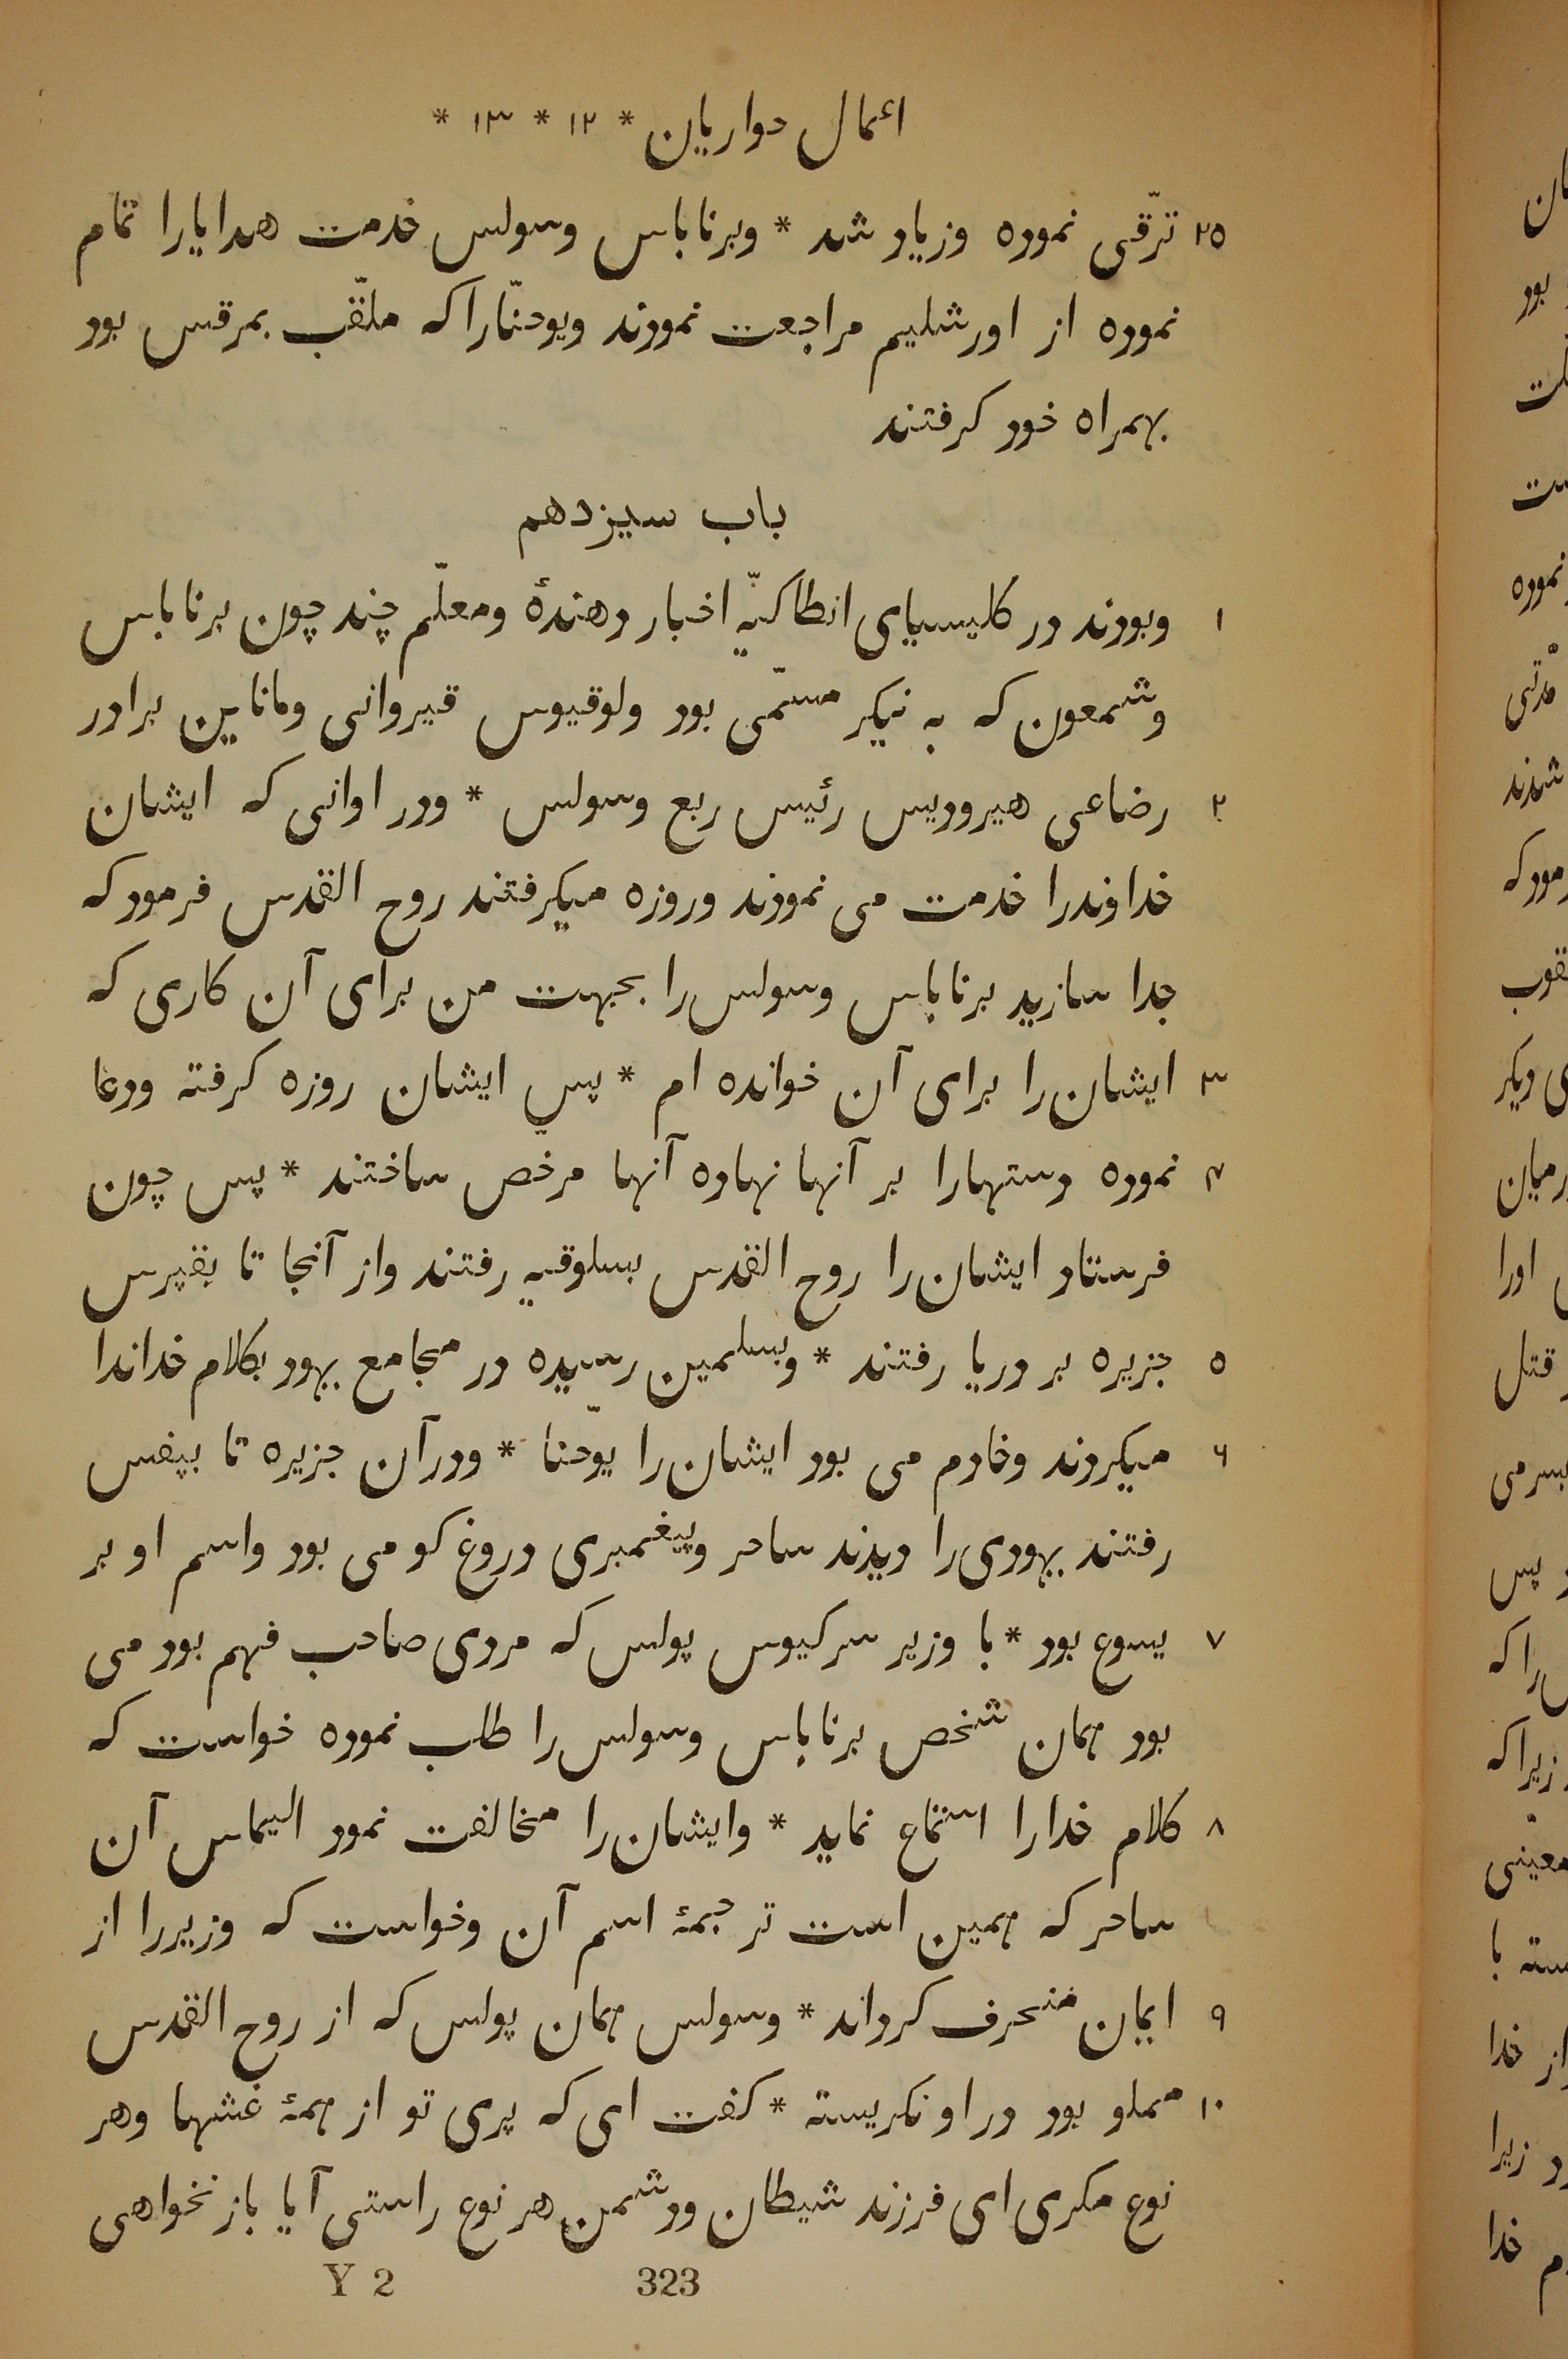 اعمال حواریان * ۱۲ * ۱۳ *
۲۵ ترّقی نموده وزیاد شد * وبرناباس وسولس خدمت هدایارا تمام
نموده از اورشلیم مراجعت نمودند ویوحنّاراکه ملقّب بمرقس بود
بهمراه خود کرفتند
باب سیزدهم
۱ وبودند در کلیسیای انطاکیّه اخبار دهندهٔ ومعلّم چند چون برناباس
وشمعون که به نیکر مسمّی بود ولوقیوس قیروانی وماناین برادر
۲ رضاعی هیرودیس رئیس ربع وسولس * ودر اوانی که ایشان
خداوندرا خدمت می نمودند وروزه میکرفتند روح القدس فرمود که
جدا سازید برناباس وسولس را بجهت من برای آن کاری که
۳ ایشان را برای آن خوانده ام * پس ایشان روزه کرفته ودعا
۴ نموده دستهارا بر آنها نهاده آنها مرخّص ساختند * پس چون
فرستاد ایشان را روح القدس بسلوقیه رفتند واز آنجا تا بقپرس
۵ جزیره بر دریا رفتند * وبسلمین رسیده در مجامع یهود بکلام خداندا
۶ میکردند وخادم می بود ایشان را یوحّنا * ودرآن جزیره تا بپفس
رفتند یهودی را دیدند ساحر وپیغمبری دروغ کو می بود واسم او بر
۷ یسوع بود * با وزیر سرکیوس پولس که مردی صاحب فهم بود می
بود همان شخص برناباس وسولس را طلب نموده خواست که
۸ کلام خدارا استماع نماید * وایشان را مخالفت نمود الیماس آن
ساحر که همین است ترجمهٔ اسم آن وخواست که وزیررا از
۹ ایمان منحرف کرداند * وسولس همان پولس که از روح القدس
۱۰ مملو بود در او نکریسته * کفت ای که پری تو از همهٔ غشها وهر
نوع مکری ای فرزند شیطان ودشمن هر نوع راستی آیا باز نخواهی
Y 2 323